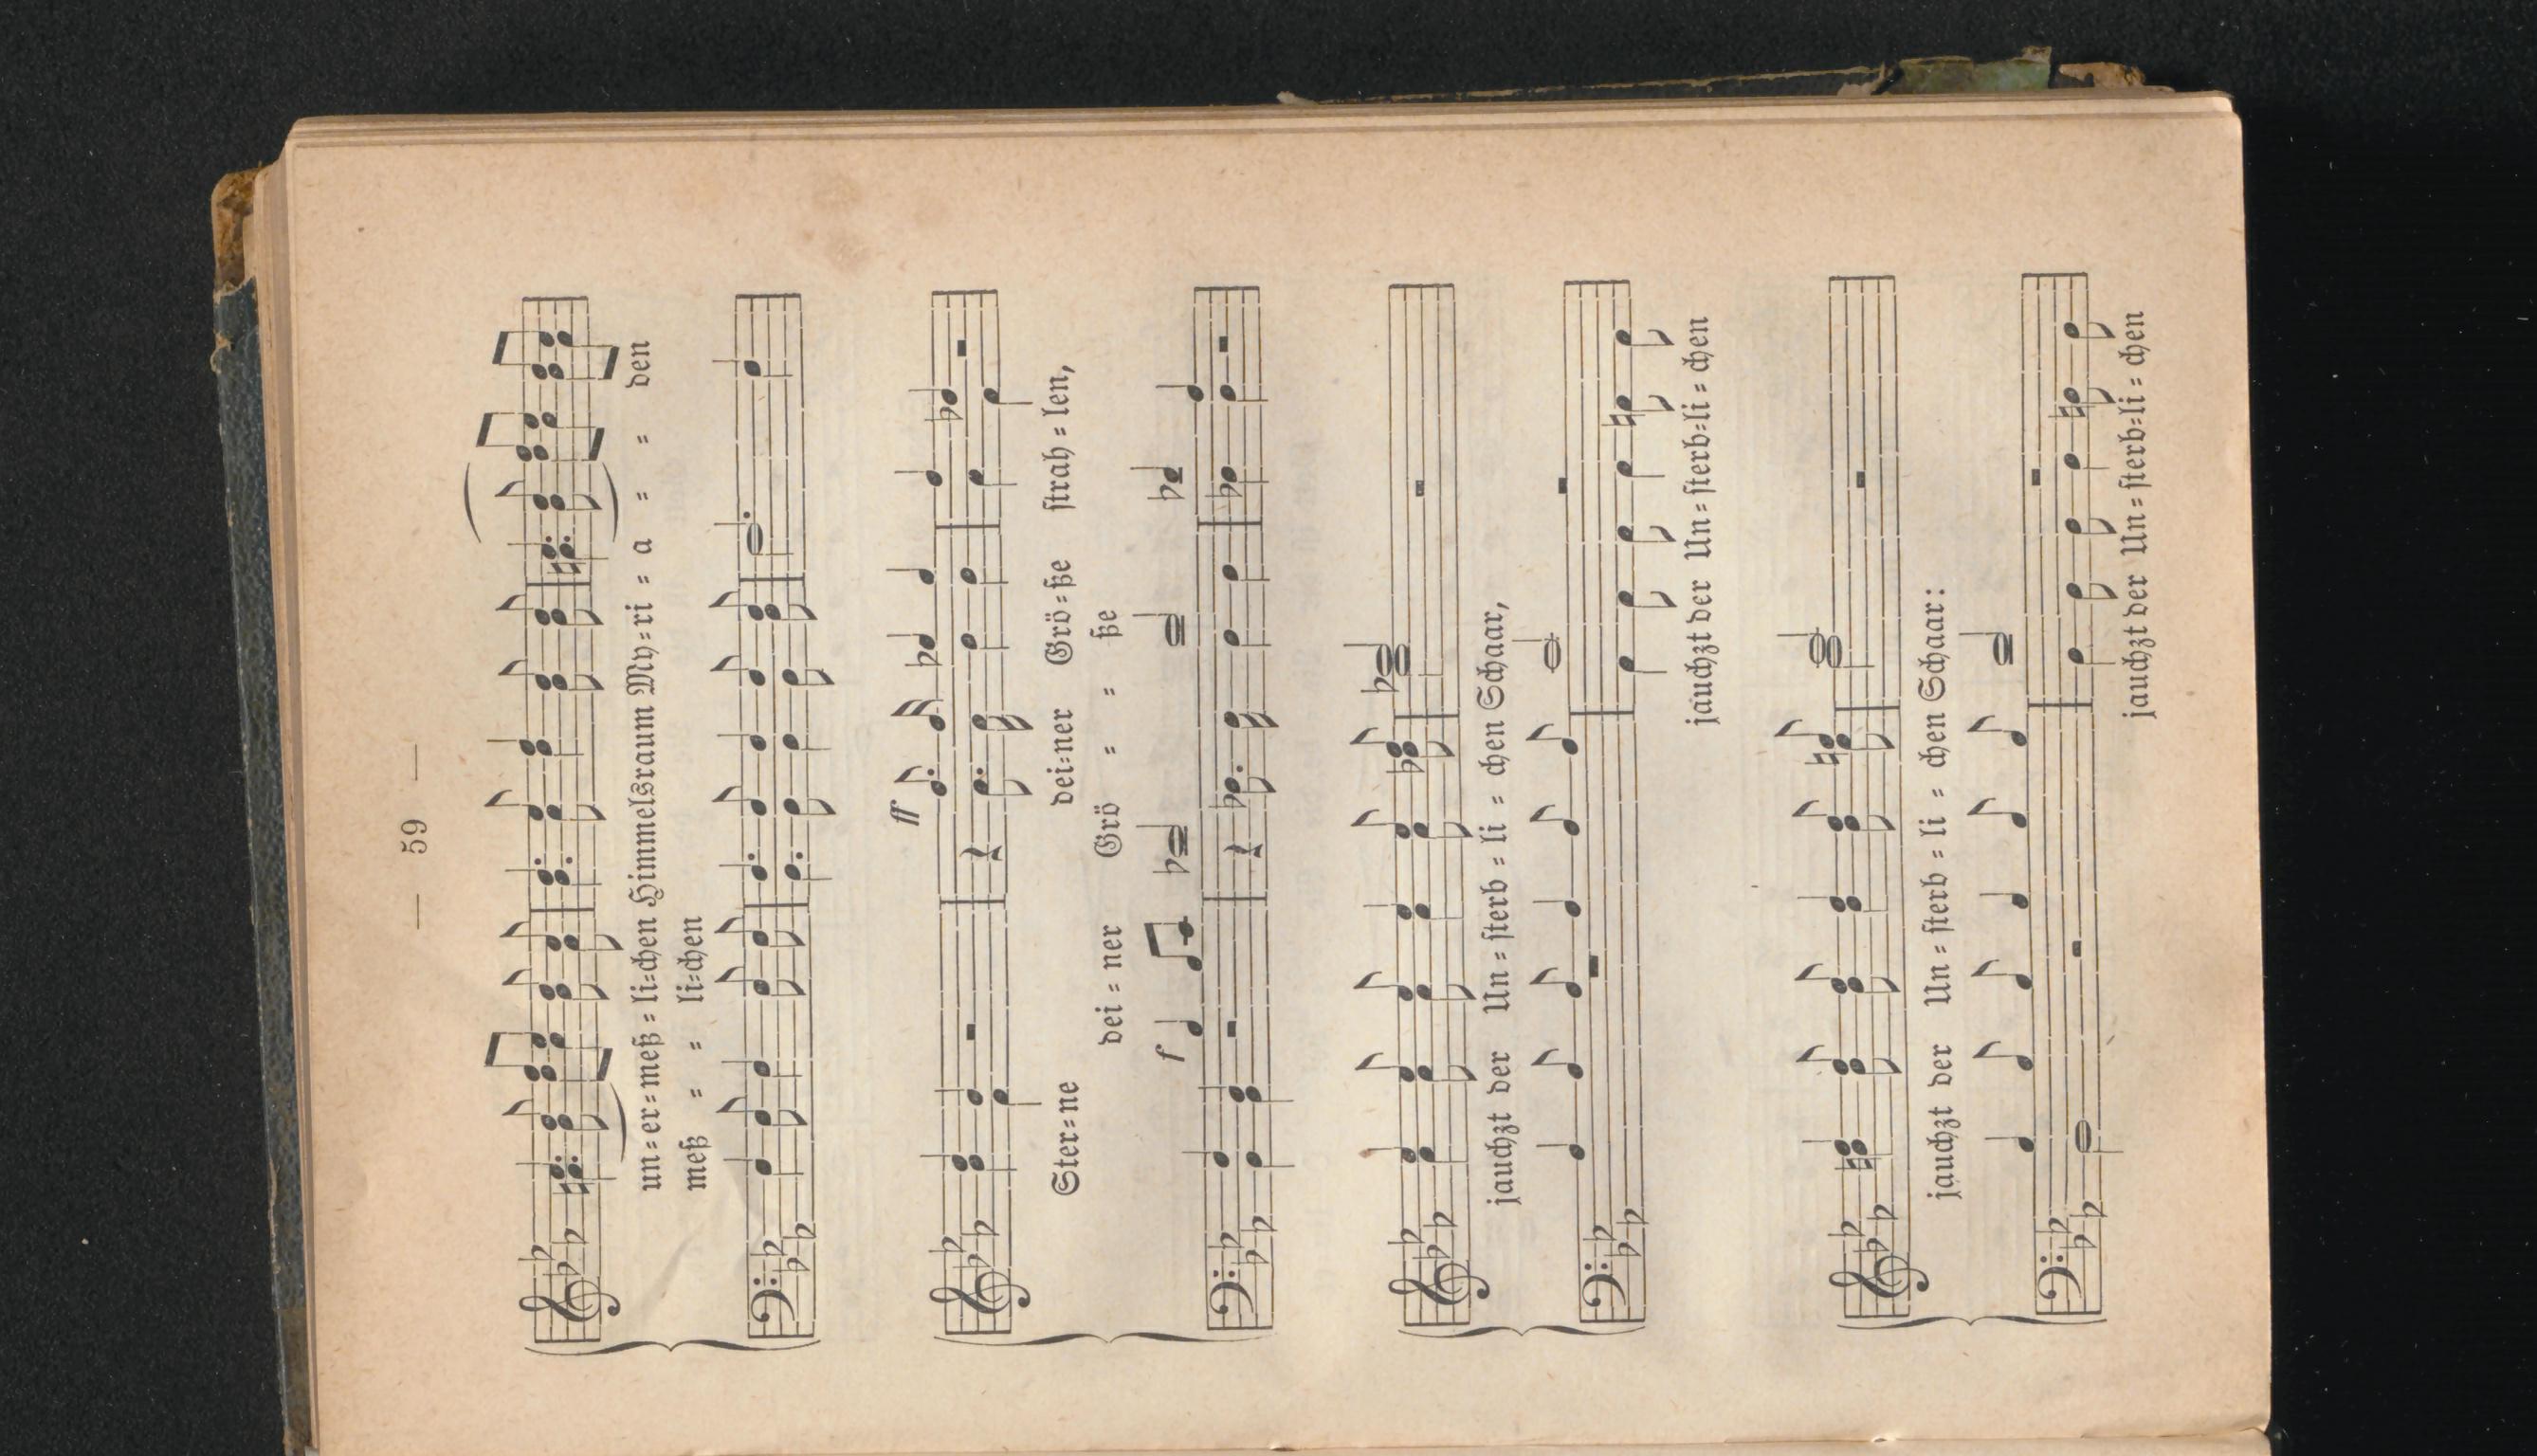 — 59 —
un=er=meß = li=chen Himmelsraum My=ri = a = = den
meß = = li=chen
ff
Ster=ne dei=ner Grö=ße strah=len,
dei = ner Grö = = ße
f
jauchzt der Un = sterb = li = chen Schaar,
jauchzt der Un = sterb=li = chen
jauchzt der Un = sterb = li = chen Schaar:
jauchzt der Un = sterb=li = chen